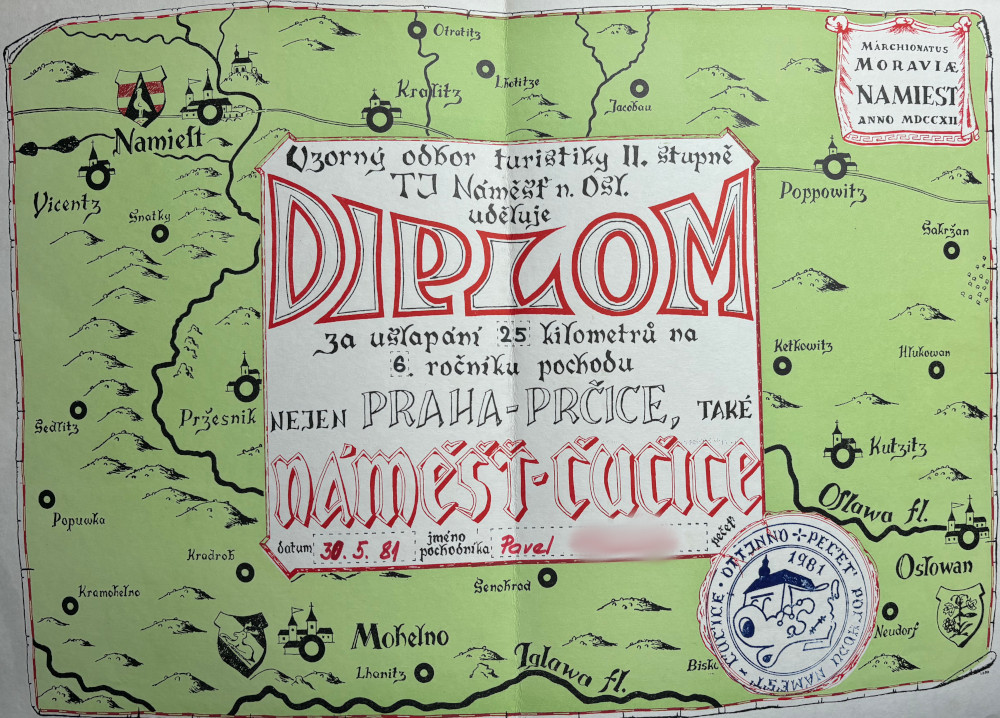 Otratitz
Lhotitze
Jacobau
Kralitz
MARCHIONATUS
MORAVIÆ
NAMIEST
ANNO MDCCXII
Namiest
Vicentz
Snatky
Poppowitz
Sakržan
Vzorný odbor turistiky II. stupně
TJ Náměšť n. Osl.
uděluje
DIPLOM
za ušlapání 25 kilometrů na
6. ročníku pochodu
NEJEN PRAHA-PRČICE, TAKÉ
NÁMĚŠŤ-ČUČICE
datum 30.5.81 jméno pochodníka Pavel pečeť
Ketkowitz
Hlukowan
Pržesnik
Sedlitz
Kutzitz
Popuwka
Oslawa fl.
Oslowan
Kradrob
Kramohelno
Senohrad
Mohelno
Neudorf
Lhanitz
Iglawa fl.
Bisk
PEČEŤ POCHODU NÁMĚŠŤ ČUČICE
1981